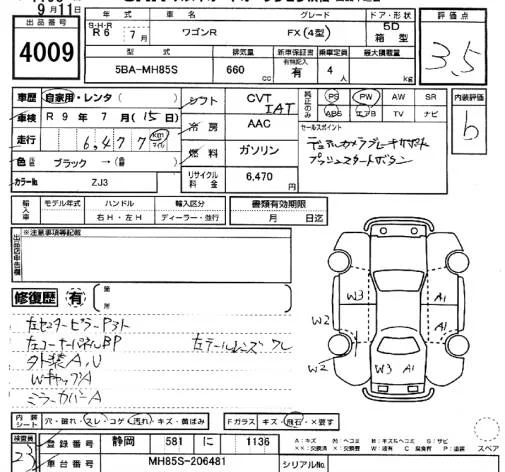 9月11日
出品番号
4009
S・H・R 年 式 車 名 グレード ドア・形状 評価点
R6 年 7月 ワゴンR FX (4型) 5D 箱型
3.5
型 式 排気量 新車保証書 乗車定員 最大積載量
5BA-MH85S 660 cc 有無記入 有 4 人 kg
車歴 自家用・レンタ ( )
車検 R 9 年 7 月 (15 日)
走行 6,477 km マイル
色 ブラック → ( )
カラーNo. ZJ3
シフト CVT IAT
冷房 AAC
燃料 ガソリン
リサイクル料金 6,470 円
純正のみ PS PW AW SR
ABS エアB TV ナビ
内装評価
b
セールスポイント
デュアルカメラブレーキサポート
プッシュスタートボタン
輸入車 モデル年式 ハンドル 輸入区分 書類有効期限
年 右H・左H ディーラー・並行 月 日迄
出品店申告欄 ※注意事項等記載
修復歴 有 箇所
左センターピラーPヌト
左コーナーパネルBP 左テールレンズ ワレ
外装A,U
WキャップA
ミラーカバーA
W3 A1
W2
W2 W3 A1 A1
内装シート 穴・破れ・スレ・コゲ・汚れ・キズ・黄ばみ Fガラス キズ・飛石・×要す
スペア
検査員 23
登録番号 静岡 581 に 1136
車台番号 MH85S-206481 シリアルNo.
A:キズ U:ヘコミ B:キズ&ヘコミ S:サビ